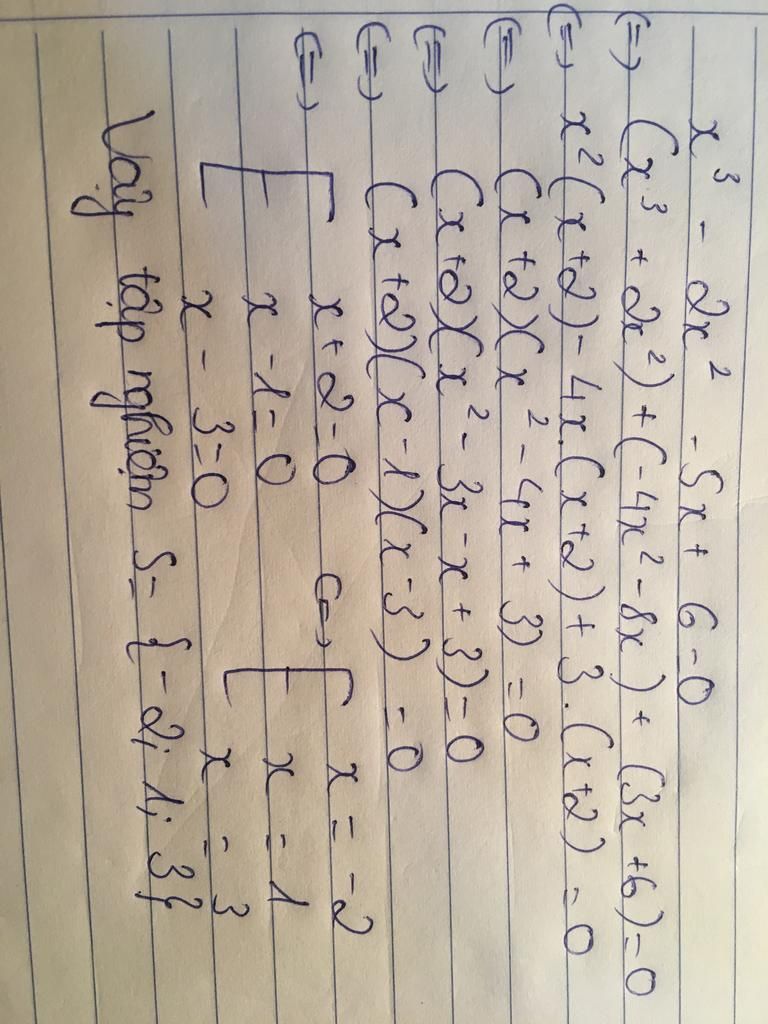 x³ - 2x² - 5x + 6 = 0
(=) (x³ + 2x²) + (-4x² - 8x) + (3x + 6) = 0
(=) x²(x+2) - 4x.(x+2) + 3.(x+2) = 0
(=) (x+2)(x² - 4x + 3) = 0
(=) (x+2)(x² - 3x - x + 3) = 0
(=) (x+2)(x-1)(x-3) = 0
(=) [ x+2=0 (=) [ x = -2
x-1=0 x = 1
x-3=0 x = 3
Vậy tập nghiệm S = {-2; 1; 3}